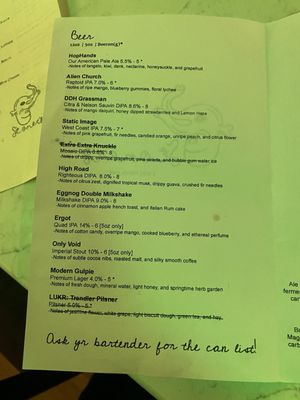 Beer
12oz / 5oz / Beeeeen(g)*
HopHands
Our American Pale Ale 5.5% - 5 *
-Notes of tangelo, kiwi, deck, nectarine, honeysuckle, and grapefruit
Alien Church
Raptoid IPA 7.0% - 6 *
-Notes of ripe mango, blueberry gummies, floral lychee
DDH Grassman
Citra & Nelson Sauvin DIPA 8.6% - 8
-Notes of mango daiquiri, honey dipped strawberries and Lemon Haze
Static Image
West Coast IPA 7.5% - 7 *
-Notes of pink grapefruit, fir needles, candied orange, unripe peach, and citrus flower
Extra Extra Knuckle
Mosaic DIPA 8.8% - 8
-Notes of drippy, overripe grapefruit, pina colada, and bubble gum water ice
High Road
Righteous DIPA 8.0% - 8
-Notes of citrus zest, dignified tropical musk, drippy guava, crushed fir needles
Eggnog Double Milkshake
Milkshake DIPA 9.0% - 8
-Notes of cinnamon apple french toast, and Italian Rum cake
Ergot
Quad IPA 14% - 6 [5oz only]
-Notes of cotton candy, overripe mango, cooked blueberry, and ethereal perfume
Only Void
Imperial Stout 10% - 6 (5oz only)
-Notes of subtle cocoa nibs, roasted malt, and silky smooth coffee
Modern Gulpie
Premium Lager 4.0% - 5 *
-Notes of fresh dough, mineral water, light honey, and springtime herb garden
LUKR: Trendler Pilsner
Pilsner 5.0% - 5 *
-Notes of jasmine flower, white grape, light biscuit dough, green tea, and hay.
Ask yr bartender for the can list!